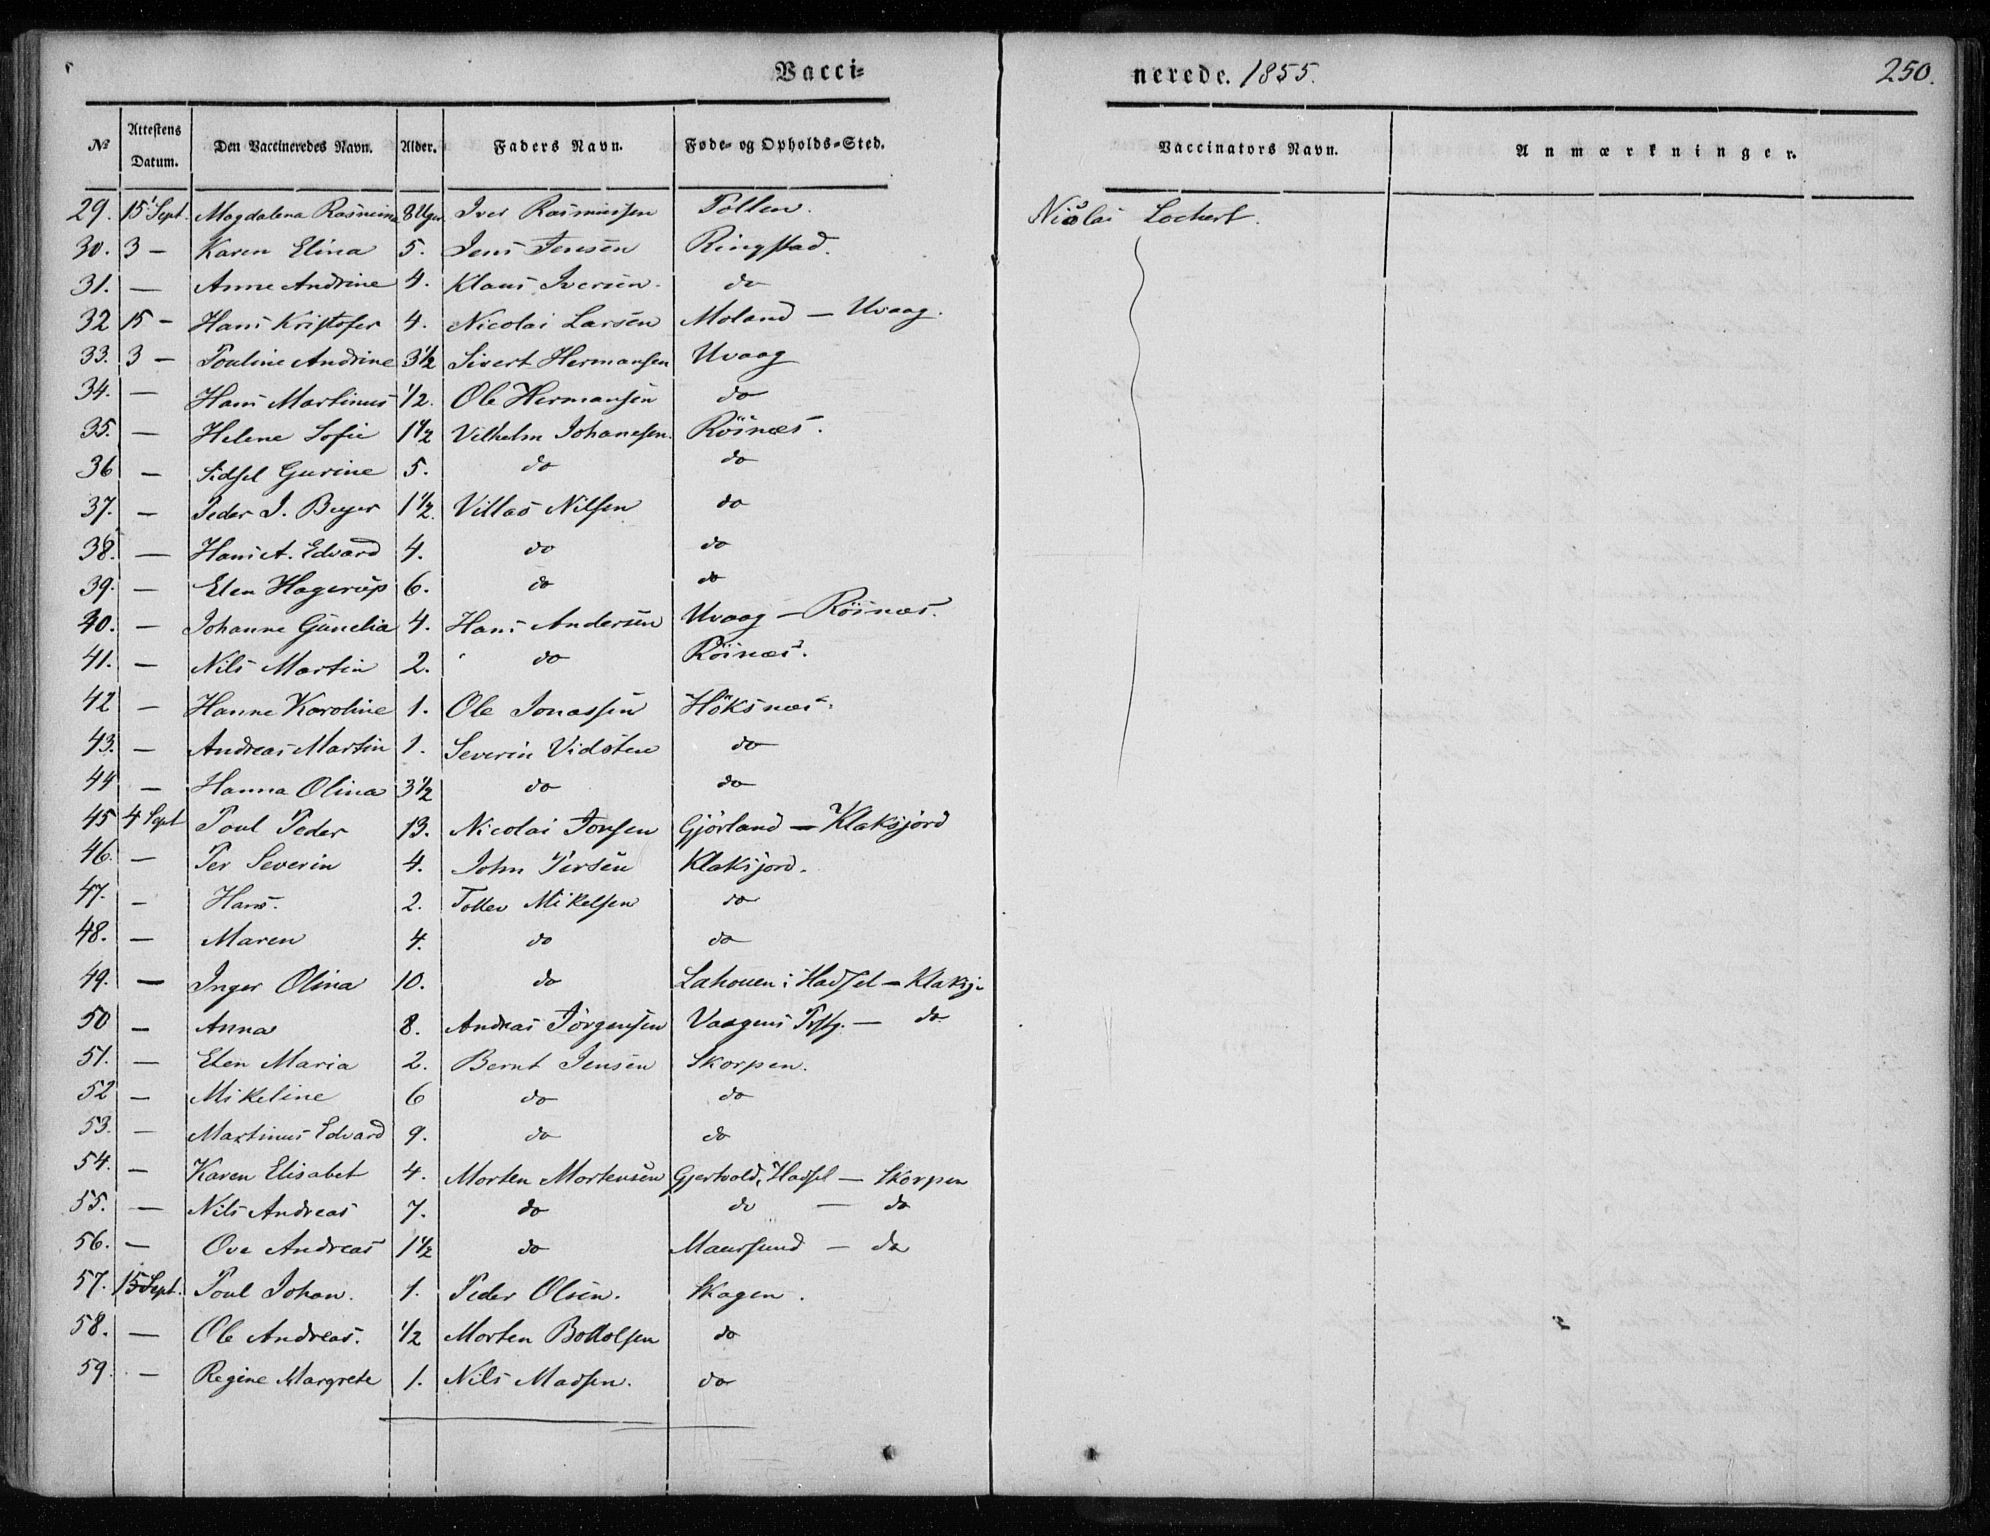 Vacci-
nerede. 1855.
250.
№ Attestens Datum. Den Vaccineredes Navn. Alder. Faders Navn. Føde- og Opholds-Sted. Vaccinators Navn. Anmærkninger.
29. 15 Sept. Magdalena Rasmina 8 Uger Iver Rasmussen Tollen. Nicolai Lockert.
30. 3 — Karen Elina 5. Jens Jensen Ringstad.
31. — Anne Andrine 4. Klaus Iversen. do
32 15 — Hans Kristofer 4. Nicolai Larsen Moland — Uvaag.
33. 3 — Pouline Andrine 3½ Sivert Hermansen Uvaag
34. — Hans Martinus ½. Ole Hermansen do
35. — Helene Sofie 1½ Vilhelm Johanesen. Röinæs.
36 — Sidsel Gurine 5. do do
37. — Peder J. Beyer 1½. Villas Nilsen do
38. — Hans A. Edvard 4. do do
39. — Elen Hagerup 6. do do
40. — Johanne Gunelia 4. Hans Andersen Uvaag — Röinæs.
41. — Nils Martin 2. do Röinæs.
42 — Hanne Karoline 1. Ole Jonassen Höksnæs.
43. — Andreas Martin 1. Severin Vidsten do
44 — Hanna Olina 3½ do do
45 4 Sept Poul Peder 13. Nicolai Jonsen Gjörland — Klaksjord
46. — Per Severin 4. John Persen Klaksjord.
47. — Hans. 2. Tollev Mikelsen do
48. — Maren 4. do do
49. — Inger Olina 10. do i Hadsel — Klaksj.
50 — Anna 8. Andreas Jörgensen Vaagens Prstg. — do
51. — Elen Maria 2. Bernt Jensen Skorpen.
52 — Mikeline 6 do do
53. — Martinus Edvard 9. do do
54. — Karen Elisabet 4. Morten Mortensen Gjertvold, Hadsel — Skorpen
55. — Nils Andreas 7. do do — do
56. — Ove Andreas 1½ do Maursund — do
57. 15 Sept. Poul Johan. 1. Peder Olsen. Skagen.
58. — Ole Andreas. ½ Morten Bottolsen do
59. — Regine Margrete 1. Nils Madsen. do